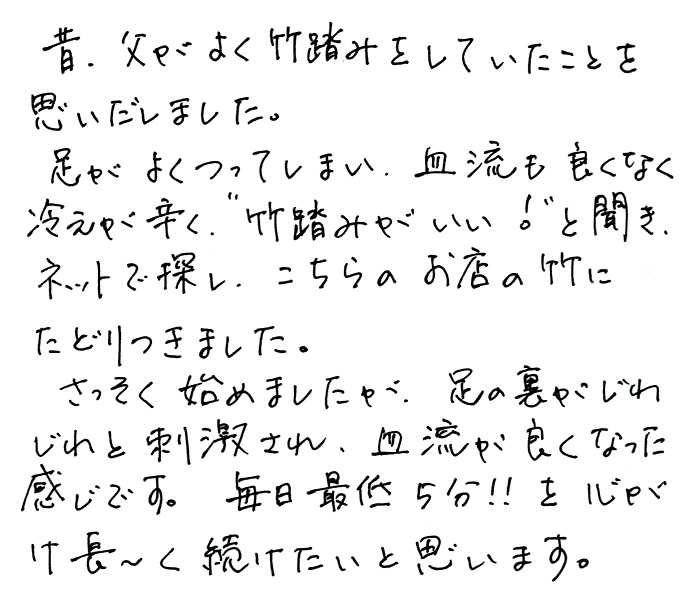 昔、父がよく竹踏みをしていたことを
思いだしました。
足がよくつってしまい、血流も良くなく
冷えが辛く、"竹踏みがいい!"と聞き、
ネットで探し、こちらのお店の竹に
たどりつきました。
さっそく始めましたが、足の裏がじわ
じわと刺激され、血流が良くなった
感じです。 毎日最低5分!!を心が
け長～く続けたいと思います。